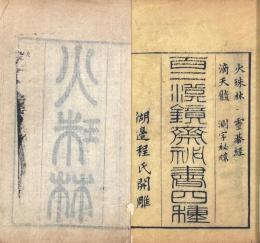 火珠林 靈棊經
滴天髓 測字秘牒
百二漢鏡齋祕書四種
湖邊程氏開雕
火珠林